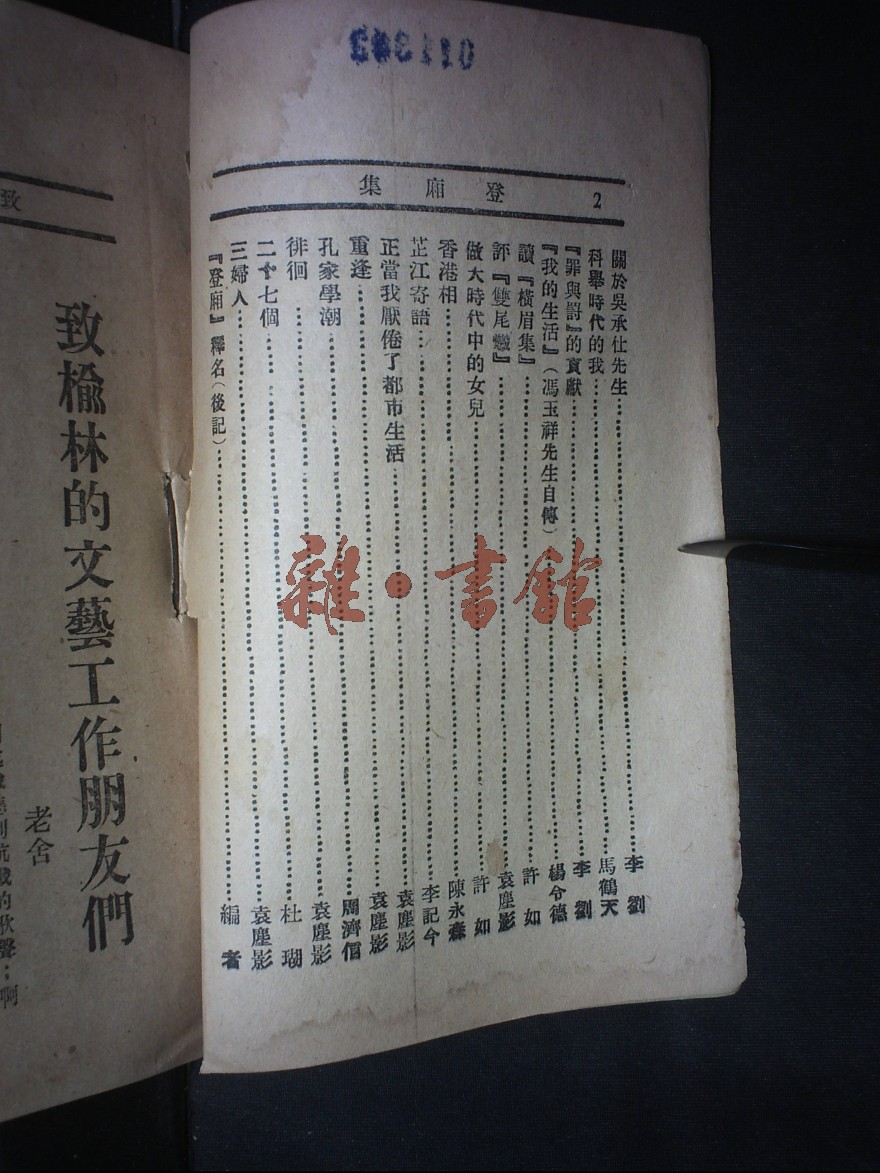 2 登廂集
關於吳承仕先生……李劉
科舉時代的我……馬鶴天
『罪與罰』的貢獻……李劉
『我的生活』（馮玉祥先生自傳）……楊令德
讀『橫眉集』……許如
評『雙尾蠍』……袁塵影
做大時代中的女兒……許如
香港相……陳永森
芷江寄語……李記今
正當我厭倦了都市生活……袁塵影
重逢……袁塵影
孔家學潮……周濟信
徘徊……袁塵影
二十七個……杜瑚
三婦人……袁塵影
『登廂』釋名（後記）……編者
雜·書館
致
致榆林的文藝工作朋友們
老舍
抗戰的歌聲：啊